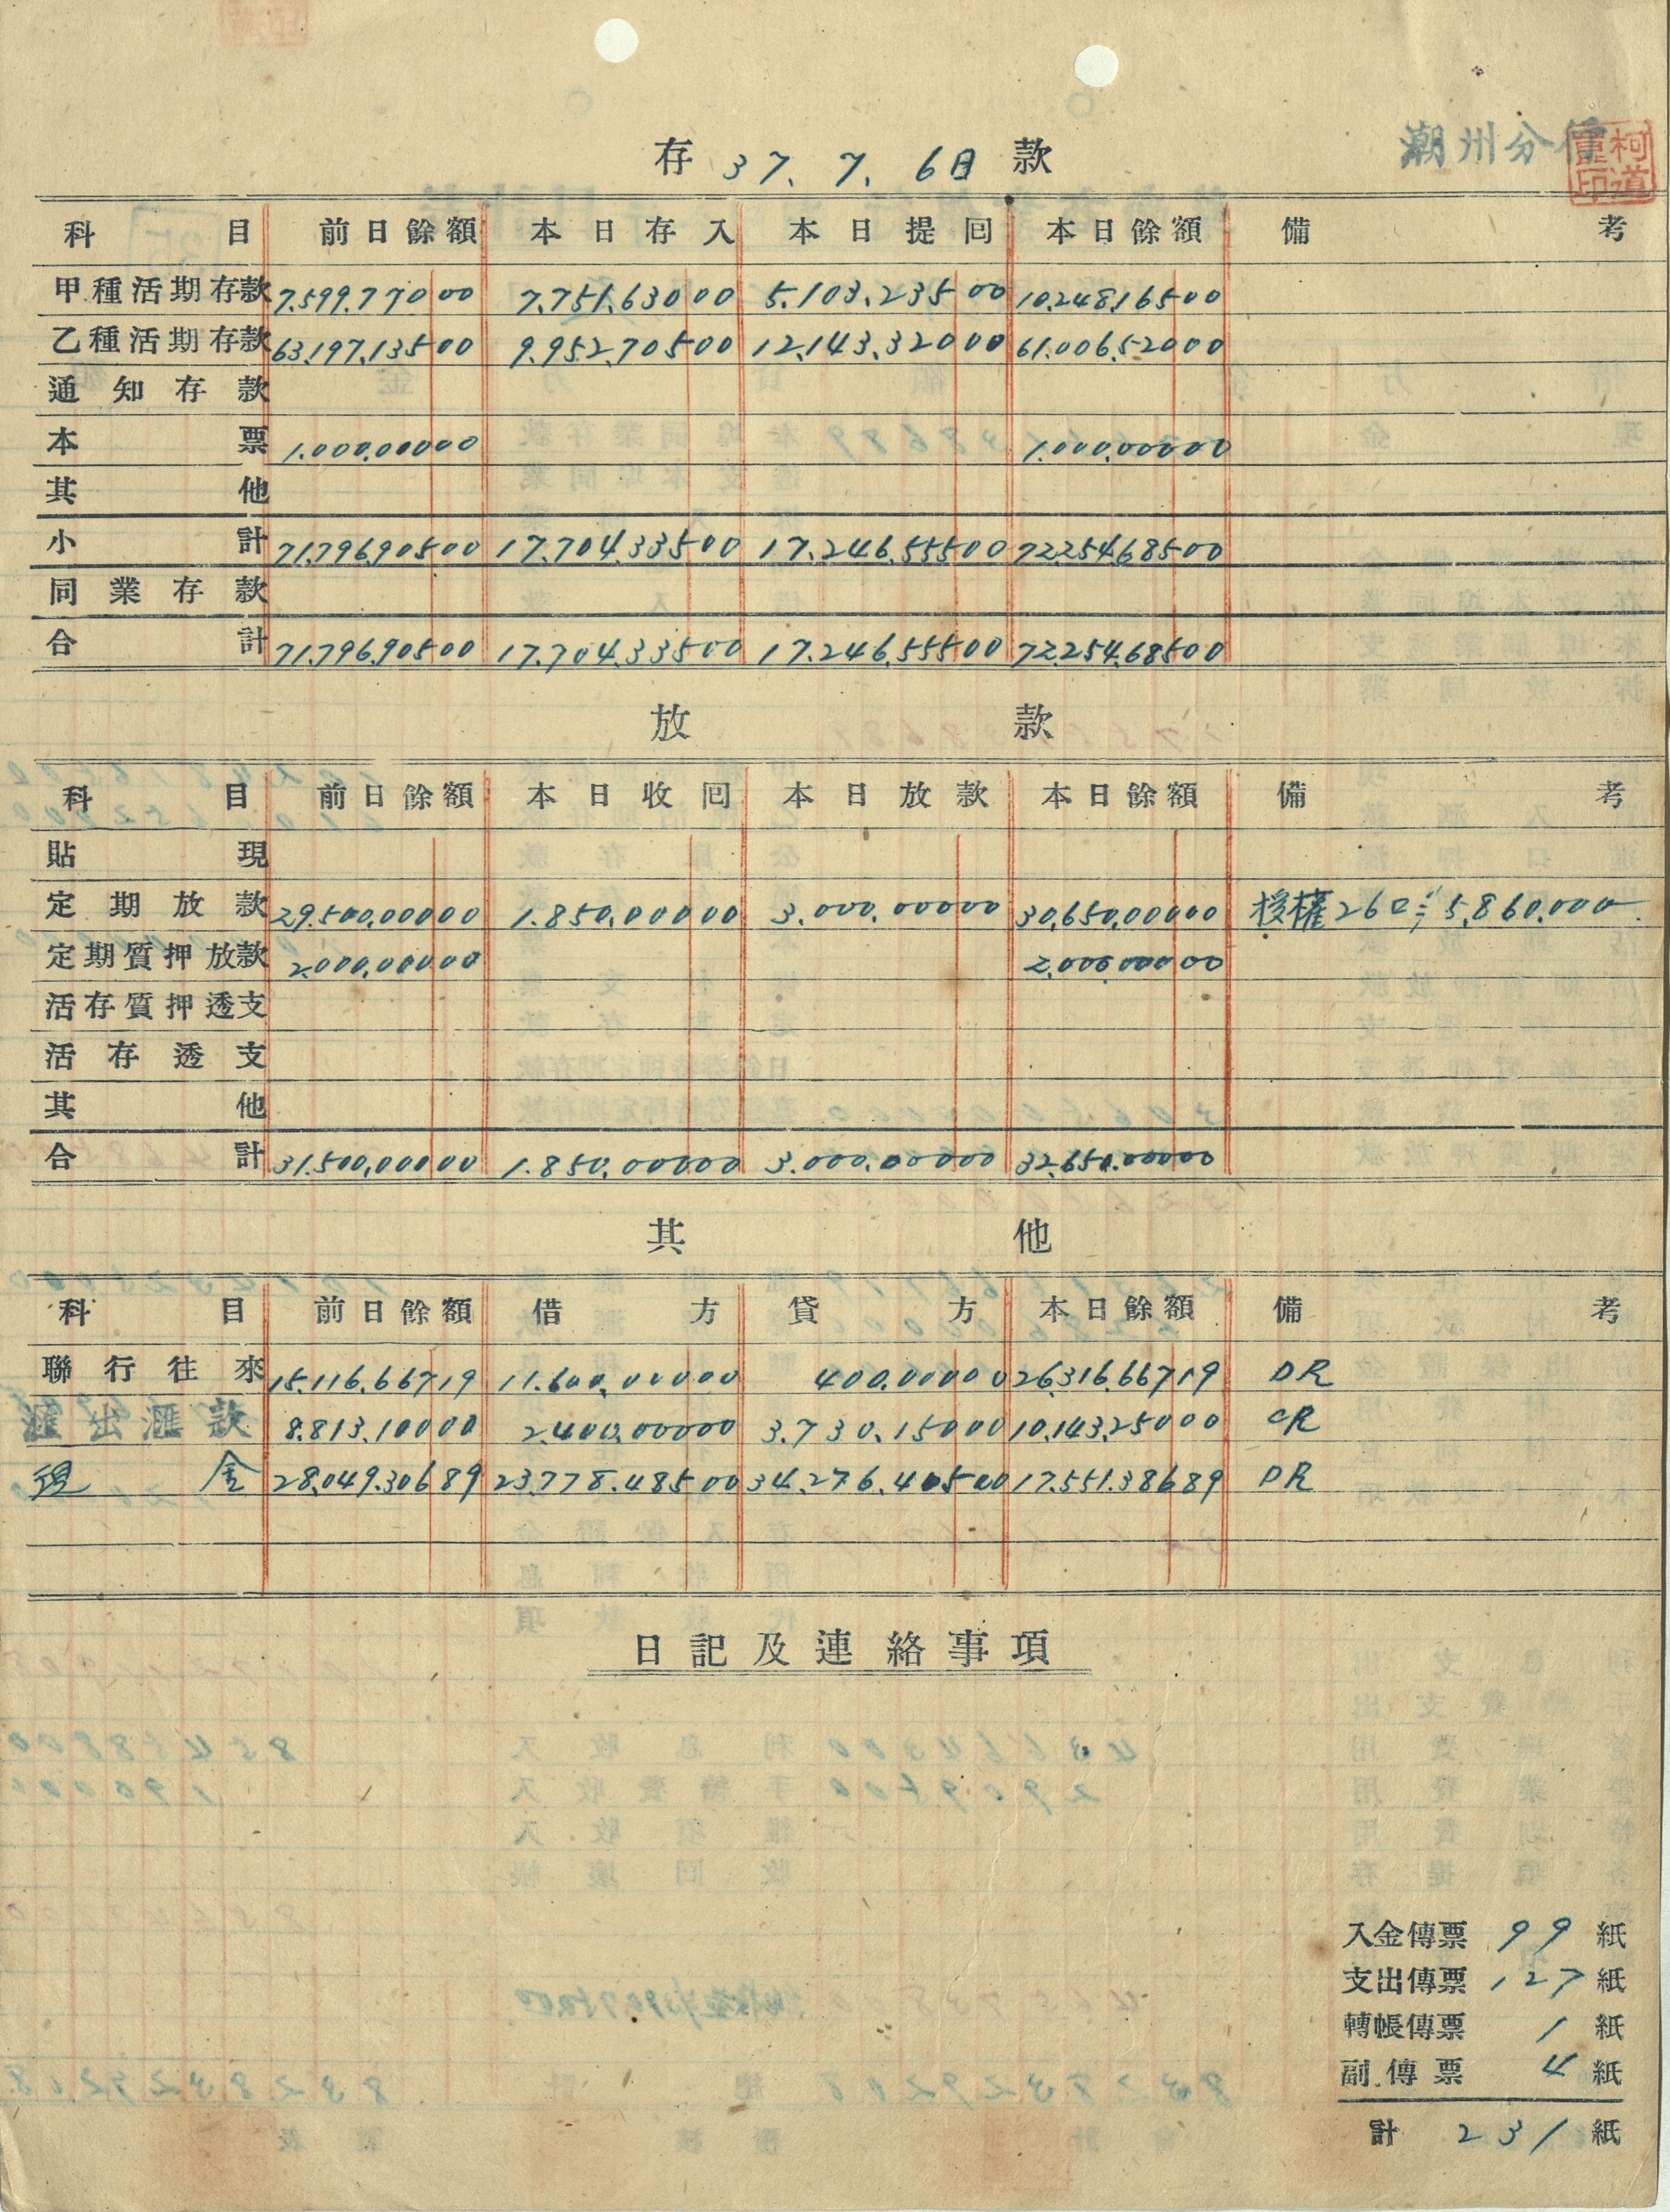 潮州分
柯道重印
存 37、7、6日 款
科目 前日餘額 本日存入 本日提囘 本日餘額 備考
甲種活期存款 7.599.770 00 7.751.630 00 5.103.235 00 10.248.165 00
乙種活期存款 63.197.135 00 9.952.705 00 12.143.320 00 61.006.520 00
通知存款
本票 1.000.000 00 1.000.000 00
其他
小計 71.796.905 00 17.704.335 00 17.246.555 00 72.254.685 00
同業存款
合計 71.796.905 00 17.704.335 00 17.246.555 00 72.254.685 00
放款
科目 前日餘額 本日收囘 本日放款 本日餘額 備考
貼現
定期放款 29.500.000 00 1.850.000 00 3.000.000 00 30,650,000 00 授權26口 5,860,000
定期質押放款 2.000.000 00 2.000.000 00
活存質押透支
活存透支
其他
合計 31.500,000 00 1.850,000 00 3.000.000 00 32.650.000 00
其他
科目 前日餘額 借方 貸方 本日餘額 備考
聯行往來 15.116.667 19 11.600,000 00 400,000 00 26.316.667 19 DR
滙出滙款 8.813.100 00 2.400,000 00 3.730.150 00 10.143.250 00 CR
現金 28.049.306 89 23.778.485 00 34.276.405 00 17.551.386 89 DR
日記及連絡事項
入金傳票 99 紙
支出傳票 127 紙
轉帳傳票 1 紙
副傳票 4 紙
計 231 紙